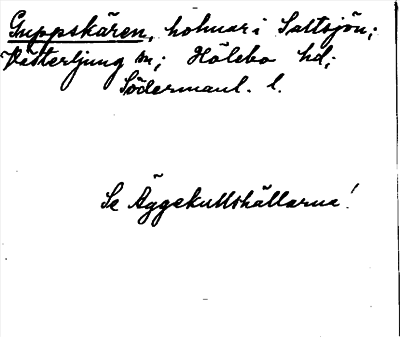 Gruppskären, holmar i Saltsjön;
Västerljung sn; Hölebo hd;
Södermanl. l.
Se Äggekullshällarna!